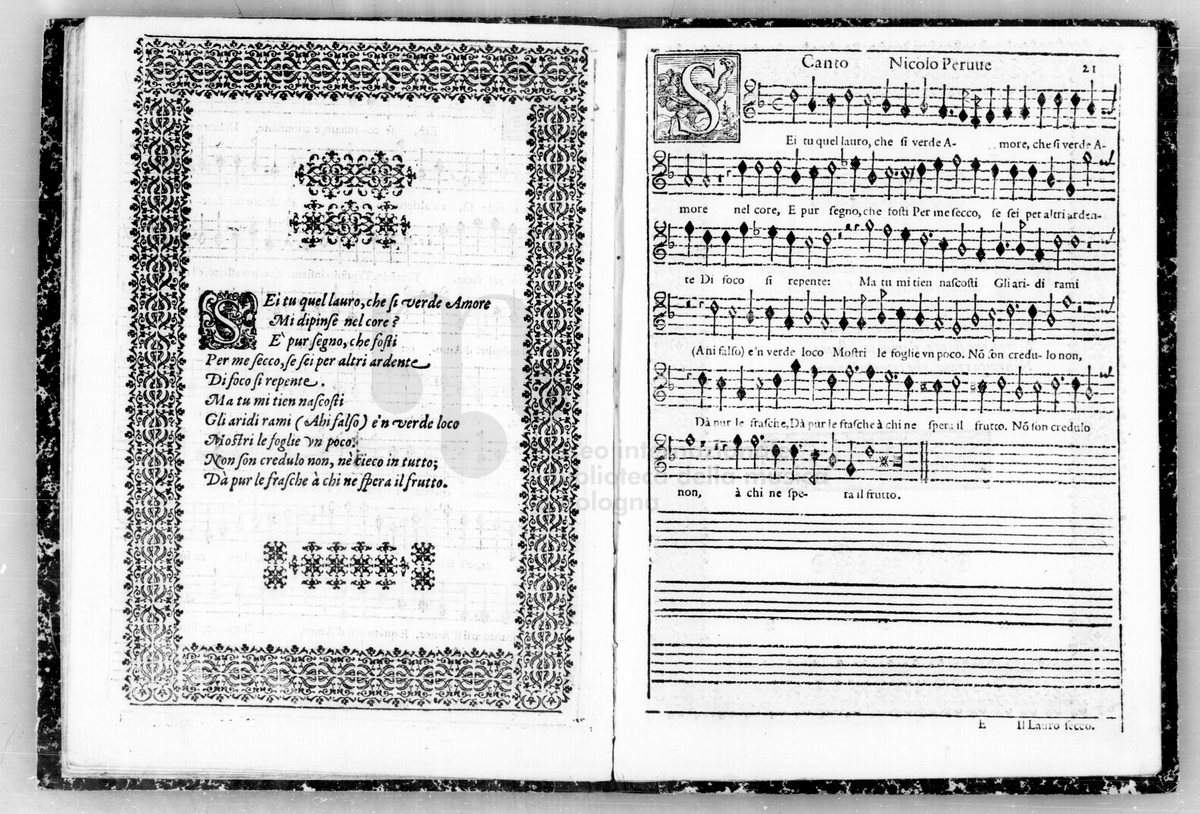 SEi tu quel lauro, che si verde Amore
Mi dipinse nel core?
E pur segno, che fosti
Per me secco, se sei per altri ardente
Di foco si repente.
Ma tu mi tien nascosti
Gli aridi rami (Ahi falso) e'n verde loco
Mostri le foglie vn poco.
Non son credulo non, nè cieco in tutto;
Dà pur le frasche à chi ne spera il frutto.
Canto Nicolo Peruue 21
SEi tu quel lauro, che si verde A- more, che si verde A-
more nel core, E pur segno, che fosti Per me secco, se sei per altri arden-
te Di foco si repente: Ma tu mi tien nascosti Gli ari- di rami
(Ani falso) e'n verde loco Mostri le foglie vn poco. Nō son credu- lo non,
Dà pur le frasche, Dà pur le frasche à chi ne spera il frutto. Nō son credulo
non, à chi ne spe- ra il frutto.
E Il Lauro secco.